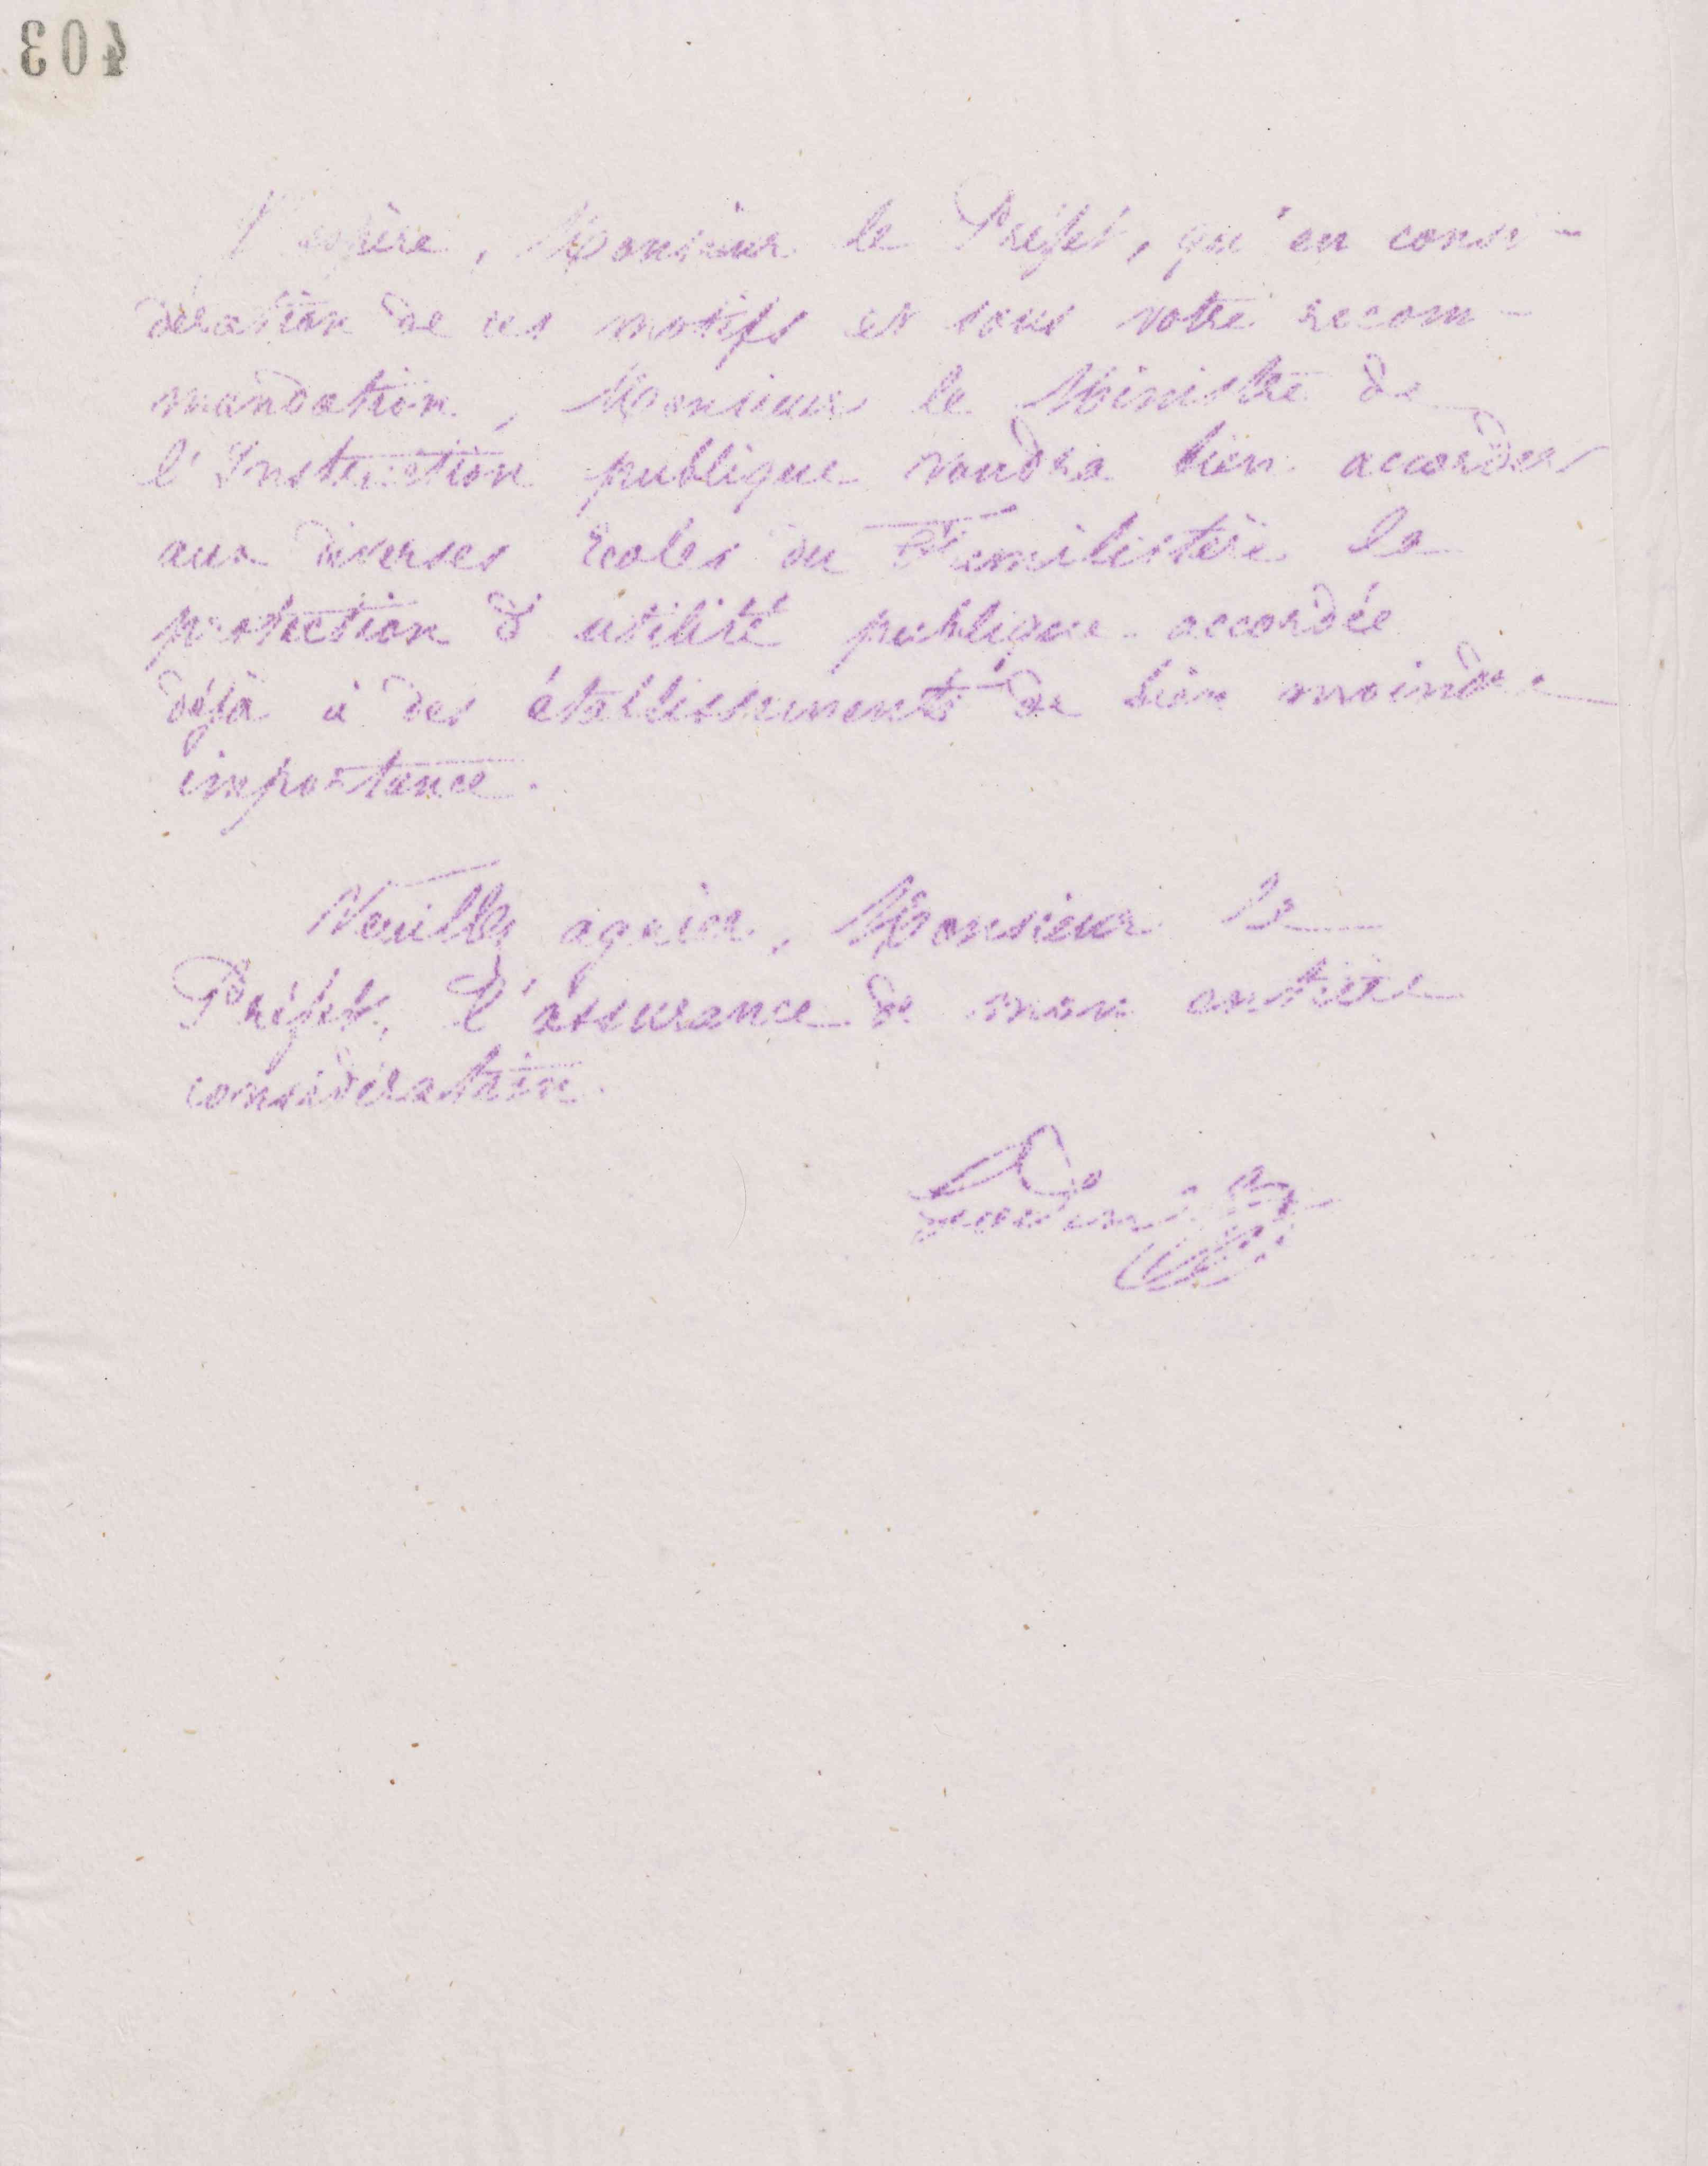 403
J'espère, Monsieur le Préfet, qu'en consi-
dération de ces motifs et sous votre recom-
mandation, Monsieur le Ministre de
l'Instruction publique voudra bien accorder
aux diverses Ecoles du Familistère la
protection d'utilité publique accordée
déjà à des établissements de bien moindre
importance.
Veuillez agréer, Monsieur le
Préfet, l'assurance de mon entière
considération.
Godin